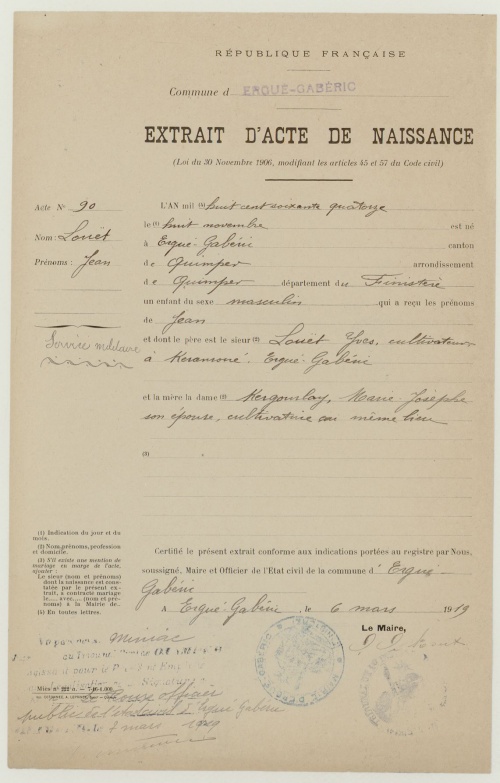 RÉPUBLIQUE FRANÇAISE
Commune d ERGUÉ-GABÉRIC
EXTRAIT D'ACTE DE NAISSANCE
(Loi du 30 Novembre 1906, modifiant les articles 45 et 57 du Code civil)
Acte N° 90
Nom : Louët
Prénoms : Jean
Service militaire
L'AN mil (4) huit cent soixante quatorze
le (1) huit novembre est né
à Ergué-Gabéric canton
de Quimper arrondissement
de Quimper département du Finistère
un enfant du sexe masculin qui a reçu les prénoms
de Jean
et dont le père est le sieur (2) Louët Yves, cultivateur
à Keranroué, Ergué-Gabéric
et la mère la dame (2) Kergourlay, Marie-Josèphe
son épouse, cultivatrice au même lieu
(3)
(1) Indication du jour et du
mois.
(2) Nom, prénoms, profession
et domicile.
(3) S'il existe une mention de
mariage en marge de l'acte,
ajouter :
Le sieur (nom et prénoms)
dont la naissance est cons-
tatée par le présent ex-
trait, a contracté mariage
le..... avec..... (nom et pré-
noms) à la Mairie de..
(4) En toutes lettres.
Certifié le présent extrait conforme aux indications portées au registre par Nous,
soussigné, Maire et Officier de l'Etat civil de la commune d' Ergué
Gabéric
A Ergué-Gabéric, le 6 mars 1919
Le Maire,
Vu par nous Miniac
officier
public de l'état civil d'Ergué Gabéric
mars 1919